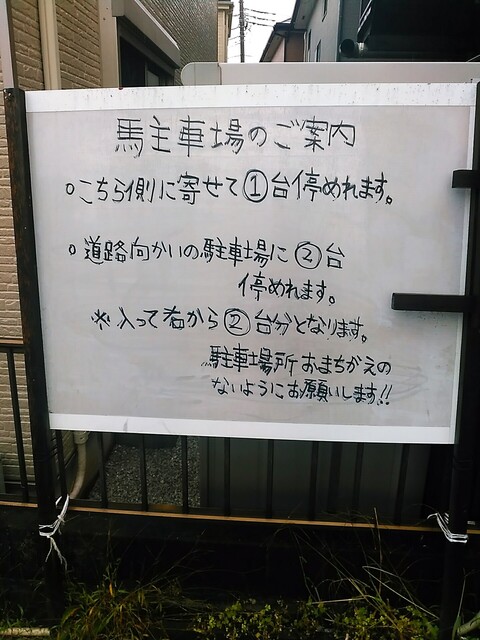 馬主車場のご案内
○こちら側に寄せて①台停めれます。
○道路向かいの駐車場に②台
停めれます。
※入って右から②台分となります。
駐車場所おまちがえの
ないようにお願いします!!